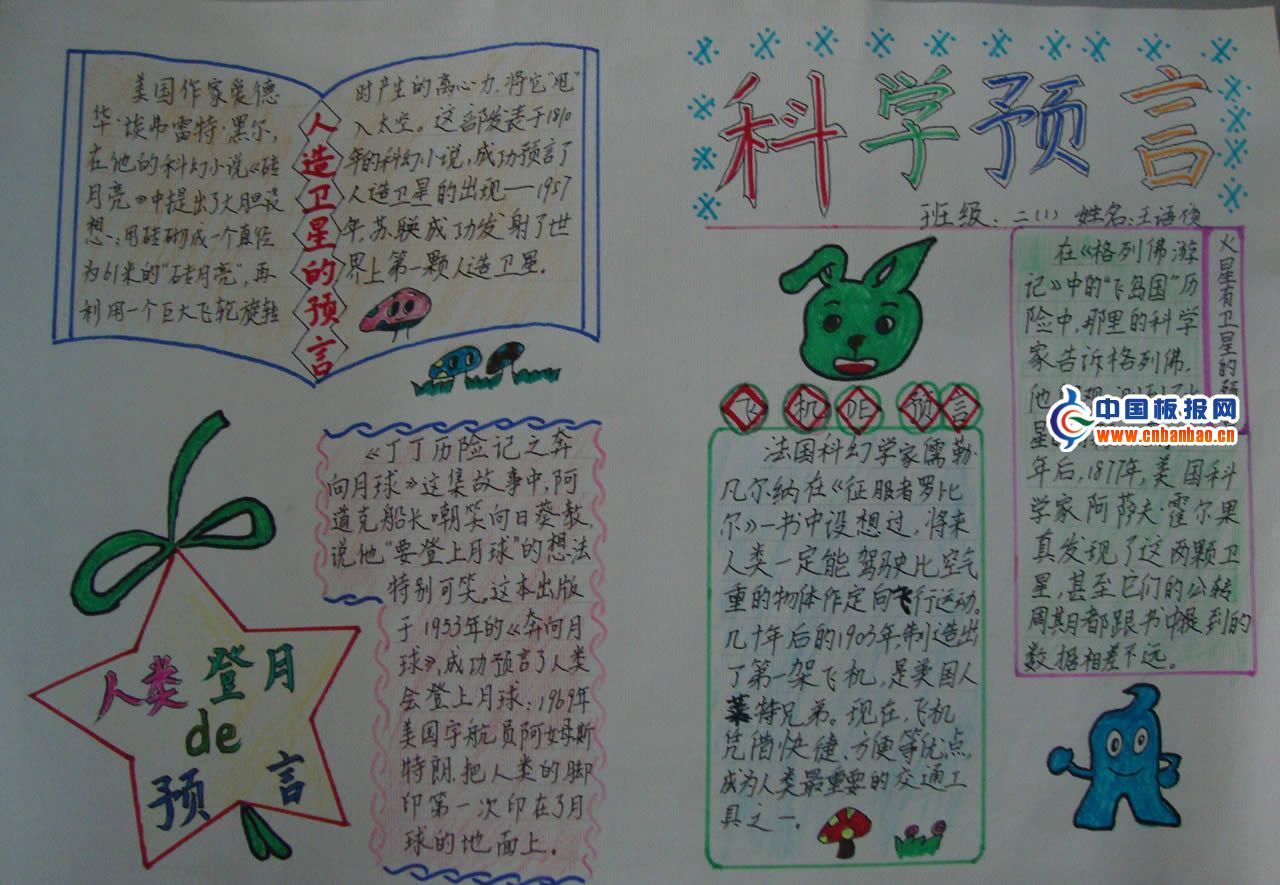 科学预言
班级：二（1） 姓名：王语俊
美国作家爱德
华·埃弗雷特·黑尔，
在他的科幻小说《砖
月亮》中提出了大胆设
想：用砖砌成一个直径
为61米的“砖月亮”，再
利用一个巨大飞轮旋转
人造卫星的预言
时产生的离心力，将它“甩”
入太空。这部发表于18
年的科幻小说，成功预言了
人造卫星的出现——1957
年，苏联成功发射了世
界上第一颗人造卫星。
人类登月
de
预言
《丁丁历险记之奔
向月球》这集故事中，阿
道克船长嘲笑向日葵教，
说他“要登上月球”的想法
特别可笑。这本出版
于1953年的《奔向月
球》，成功预言了人类
会登上月球：1969年
美国宇航员阿姆斯
特朗，把人类的脚
印第一次印在了月
球的地面上。
飞机DE预言
法国科幻学家儒勒·
凡尔纳在《征服者罗比
尔》一书中设想过，将来
人类一定能驾驶比空气
重的物体作定向飞行运动。
几十年后的1903年，制造出
了第一架飞机，是美国人
莱特兄弟。现在，飞机
凭借快捷、方便等优点，
成为人类最重要的交通工
具之一。
火星有卫星的预
在《格列佛游
记》中的“飞岛国”历
险中，那里的科学
家告诉格列佛，
他
星
年后，1877年，美国科
学家阿萨夫·霍尔果
真发现了这两颗卫
星，甚至它们的公转
周期都跟书中提到的
数据相差不远。
中国板报网
www.cnbanbao.cn